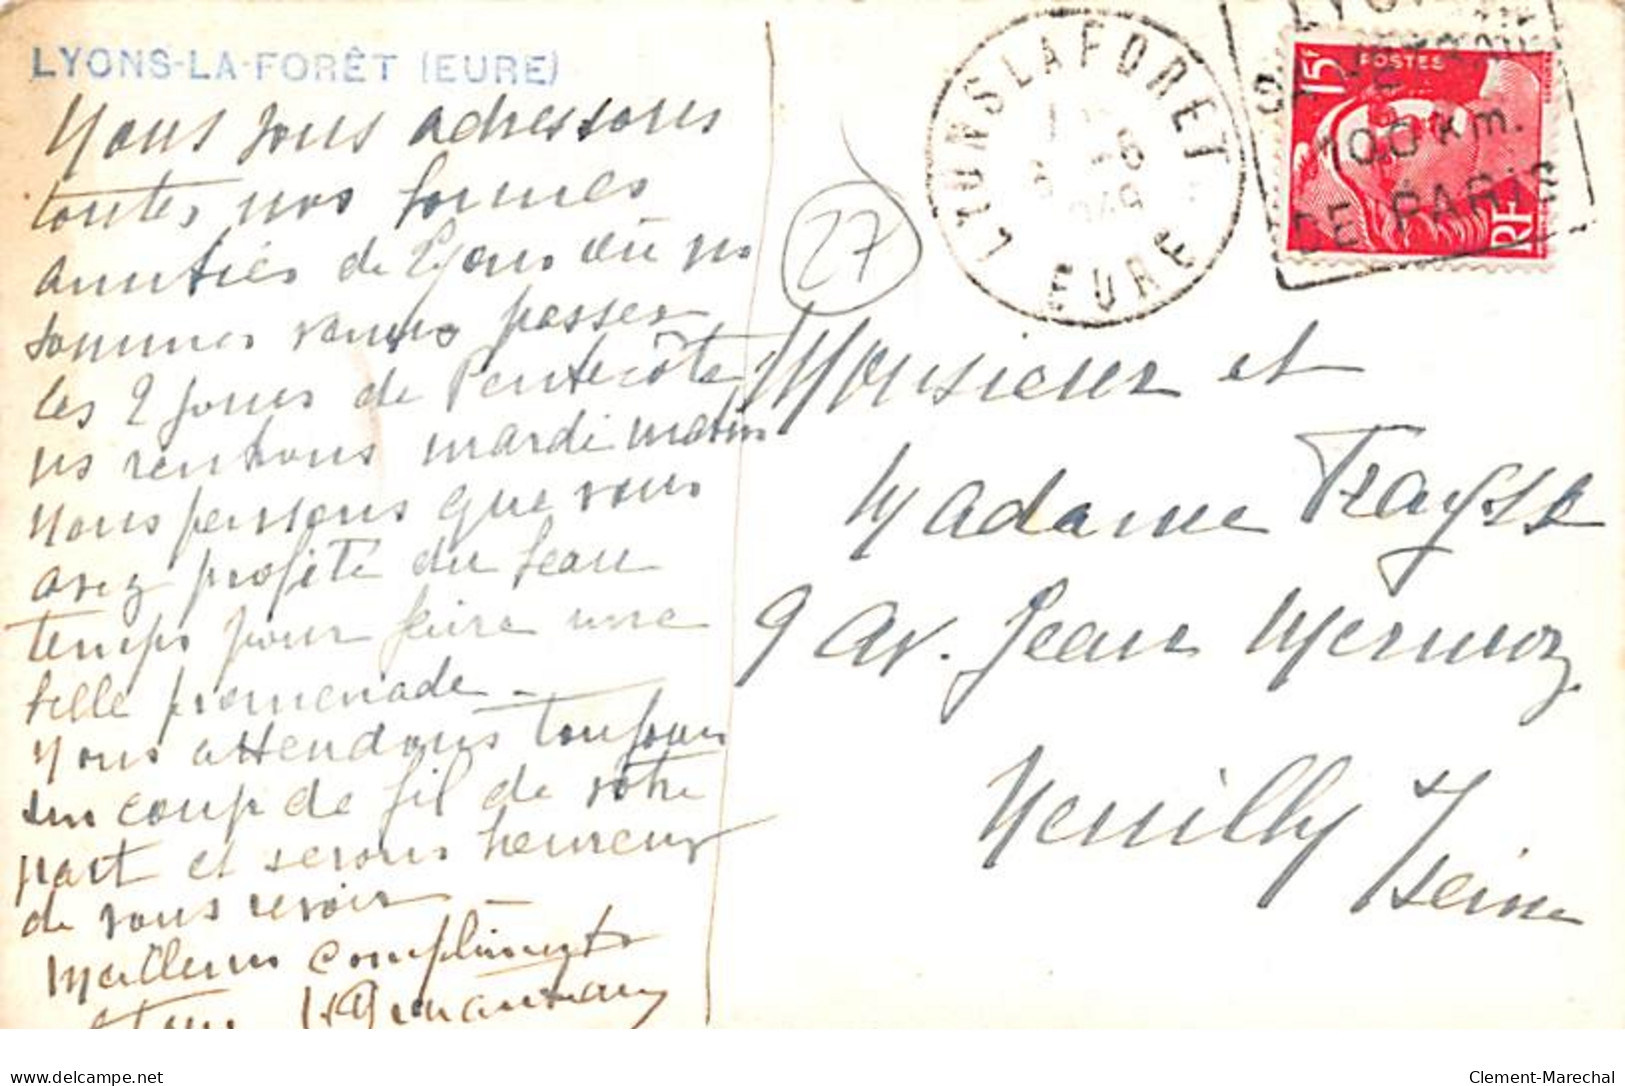 LYONS-LA-FORÊT (EURE)
Nous vous adressons
toutes nos bonnes
amitiés de Lyons où ns
sommes venus passer
les 2 jours de Pentecôte
ns rentrons mardi matin
Nous pensons que vous
avez profité du beau
temps pour faire une
belle promenade -
Nous attendons toujours
un coup de fil de votre
part et serons heureux
de vous revoir -
Meilleurs compliments
LYONS LA FORET
EURE
15F POSTES
RF
100 km.
DE PARIS
27
Monsieur et
Madame Fraysse
9 av. Jean Mermoz
Neuilly s/
Seine
www.delcampe.net
Clement-Marechal